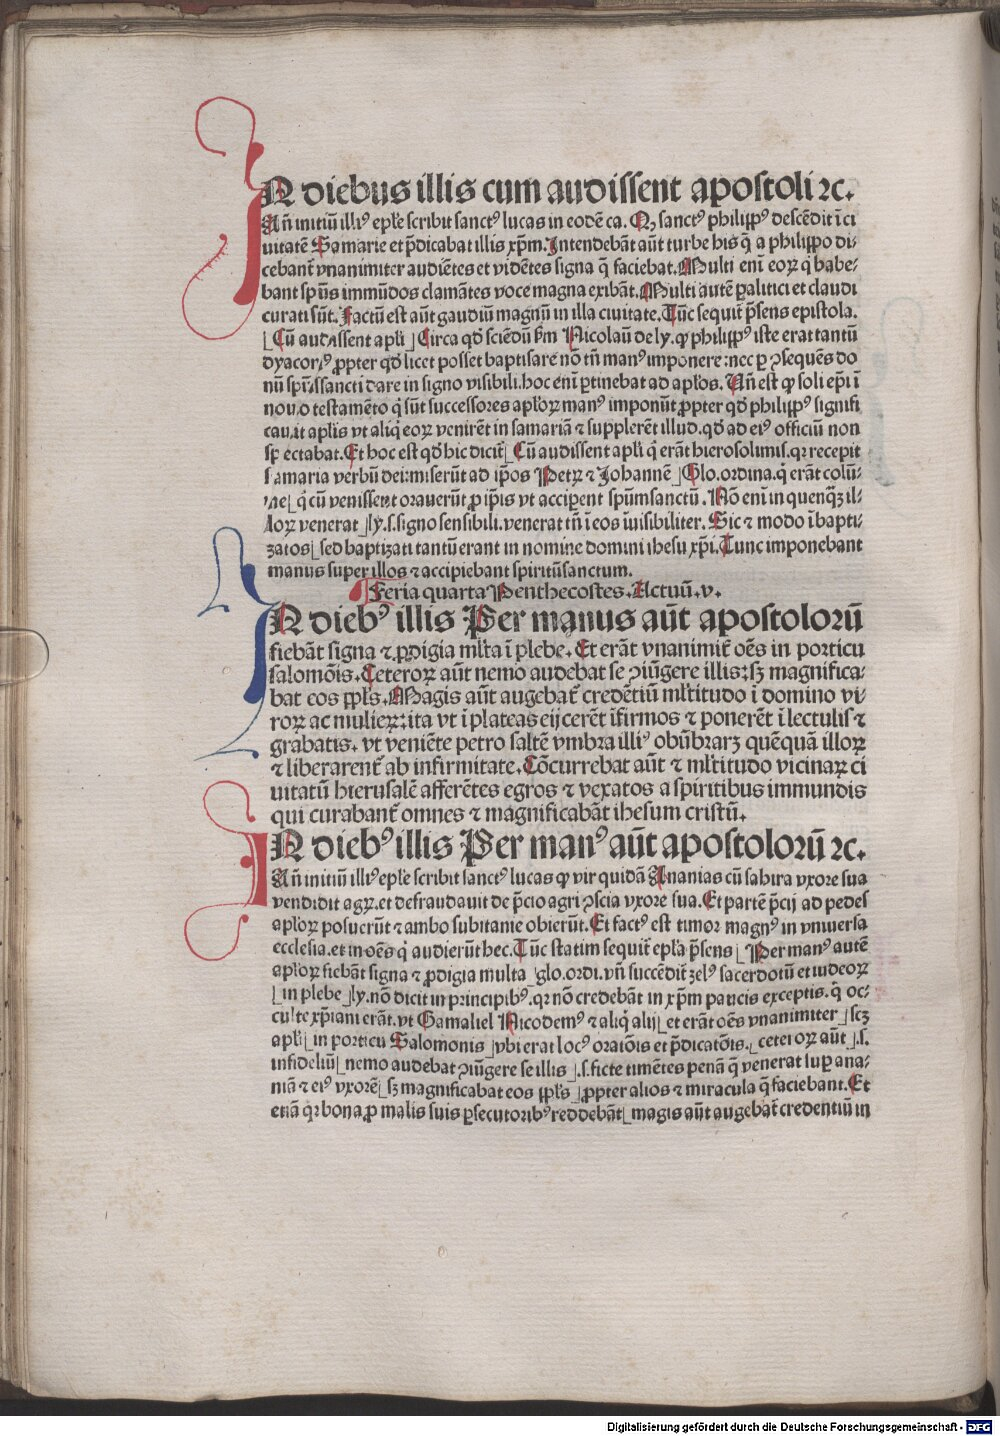 IN diebus illis cum audissent apostoli ⁊c.
Añ initiũ illiꝰ epl̃e scribit sanctꝰ lucas in eodẽ ca. Qꝫ sanctꝰ philipp̱ꝰ descẽdit ĩ ci
uitatẽ Samarie et p̃dicabat illis xp̃m. Intendebãt aũt turbe his q̃ a philippo di-
cebant̃ vnanimiter audiẽtes et vidẽtes signa q̃ faciebat. Multi enĩ eoꝝ q̇ habe-
bant sp̃us immũdos clamãtes voce magna exibãt. Multi autẽ ꝑalitici et claudi
curati sũt. Factũ est aũt gaudiũ magnũ in illa ciuitate. Tũc sequit̃ p̃sens epistola.
⌊Cũ audissent apl̃i⌋ Circa qd̃ sciendũ ẜm Nicolaũ de ly. ꝙ philippꝰ iste erat tantũ
dyaconꝰ ꝓpter qd̃ licet posset baptisare nõ tñ manꝰ imponere: nec ꝑ ↄsequẽs do
nũ sp̃ussancti dare in signo visibili. hoc enĩ ꝑtinebat ad apl̃os. Uñ est ꝙ soli ep̃i ĩ
nouo testamẽto q̇ sũt successores apl̃oꝝ manꝰ imponũt ꝓpter qd̃ philippꝰ signifi
cauit apl̃is vt aliq̇ eoꝝ venirẽt in samariã ⁊ supplerẽt illud. qd̃ ad eiꝰ officiũ non
spectabat. Et hoc est qd̃ hic dicit̃⌊ Cũ audissent apl̃i q̇ erãt hierosolimis. qꝛ recepit
samaria verbũ dei: miserũt ad ip̃os Petꝝ ⁊ Johannẽ⌋ Glo. ordina. q̇ erãt colũ-
ne⌊ q̇ cũ venissent orauerũt ꝓ ip̃is vt acciperent sp̃umsanctũ. Nõ enĩ in quenq̃ꝫ il-
loꝝ venerat⌋ ly. s. signo sensibili. venerat tñ ĩ eos inuisibiliter. Sic ⁊ modo ĩ bapti-
zatos⌊ sed baptizati tantũ erant in nomine domini ihesu xp̃i. Tunc imponebant
manus super illos ⁊ accipiebant spiritũsanctum.
Feria quarta Penthecostes. Actuũ. v.
IN diebꝰ illis Per manus aũt apostolorũ
fiebãt signa ⁊ ꝓdigia ml̃ta ĩ plebe. Et erãt vnanimit̃ oẽs in porticu
salomõis. Ceteroꝝ aũt nemo audebat se ↄiũgere illis: sꝫ magnifica-
bat eos ppl̃s. Magis aũt augebat̃ credẽtiũ ml̃titudo ĩ domino vi-
roꝝ ac mulieꝝ: ita vt ĩ plateas eijcerẽt ĩfirmos ⁊ ponerẽt ĩ lectulis ⁊
grabatis. vt veniẽte petro saltẽ vmbra illiꝰ obũbraꝝ quẽquã illoꝝ
⁊ liberarent̃ ab infirmitate. Cõcurrebat aũt ⁊ ml̃titudo vicinaꝝ ci
uitatũ hierusalẽ afferẽtes egros ⁊ vexatos a spiritibus immundis
qui curabant̃ omnes ⁊ magnificabãt ihesum cristũ.
IN diebꝰ illis Per manꝰ aũt apostolorũ ⁊c.
Añ initiũ illiꝰ epl̃e scribit sanctꝰ lucas ꝙ vir quidã Ananias cũ sahira vxore sua
vendidit agꝝ. et defraudauit de p̃cio agri ↄscia vxore sua. Et partẽ p̃cij ad pedes
apl̃oꝝ posuerũt ⁊ ambo subitanie obierũt. Et factꝰ est timor magnꝰ in vniuersa
ecclesia. et in oẽs q̇ audierũt hec. Tũc statim sequit̃ epl̃a p̃sens⌊ Per manꝰ autẽ
apl̃oꝝ fiebãt signa ⁊ ꝓdigia multa⌋ glo. ordi. vñ succẽdit̃ zelꝰ sacerdotũ et iudeoꝝ
⌊in plebe⌋ ly. nõ dicit in principibꝰ. qꝛ nõ credebãt in xp̃m paucis exceptis. q̇ oc-
culte xp̃iani erãt. vt Gamaliel Nicodemꝰ ⁊ aliq̇ alij⌊ et erãt oẽs vnanimiter⌋ scꝫ
apl̃i⌊ in porticu Salomonis⌋ vbi erat locꝰ oratiõis et p̃dicatõis. ⌊ceteroꝝ aũt⌋. s.
infideliũ⌊ nemo audebat ↄiũgere se illis⌋. s. ficte timẽtes penã q̃ venerat suꝑ ana-
niã ⁊ eiꝰ vxorẽ⌊ sꝫ magnificabat eos ppl̃s⌋ ꝓpter alios ⁊ miracula q̃ faciebant. Et
etiã qꝛ bona ꝓ malis suis ꝑsecutoribꝰ reddebãt⌊ magis aũt augebat̃ credentiũ in
Digitalisierung gefördert durch die Deutsche Forschungsgemeinschaft - DFG